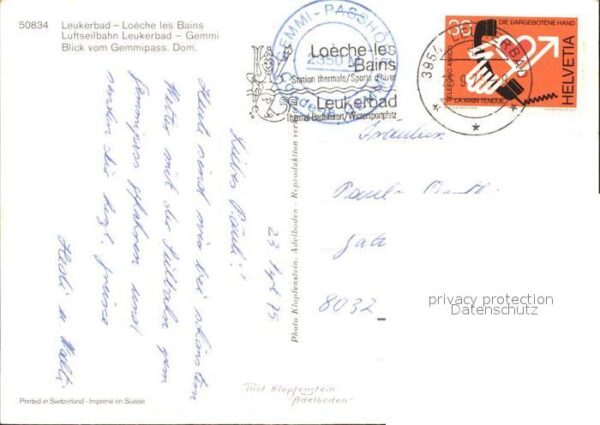 50834 Leukerbad – Loèche les Bains
Luftseilbahn Leukerbad – Gemmi
Blick vom Gemmipass. Dom.
GEMMI-PASSHÖ
2350
Loèche-les
Bains
Station thermale/Sports d'hiver
Leukerbad
Thermal-Badekurort/Wintersportplatz
3954
30 DIE DARGEBOTENE HAND
TELEFONO AMICO
LA MAIN TENDUE
HELVETIA
23. Sept 75
Liebes Pauli!
Heute sind wir bei schönstem
Wetter mit der Seilbahn zum
Gemmipass gefahren und
senden die herzl. Grüsse
Heidi u. Walti
Photo Klopfenstein, Adelboden - Reproduktion ver
Fräulein
8032
privacy protection
Datenschutz
Phot Klopfenstein
Adelboden
Printed in Switzerland - Imprimé en Suisse